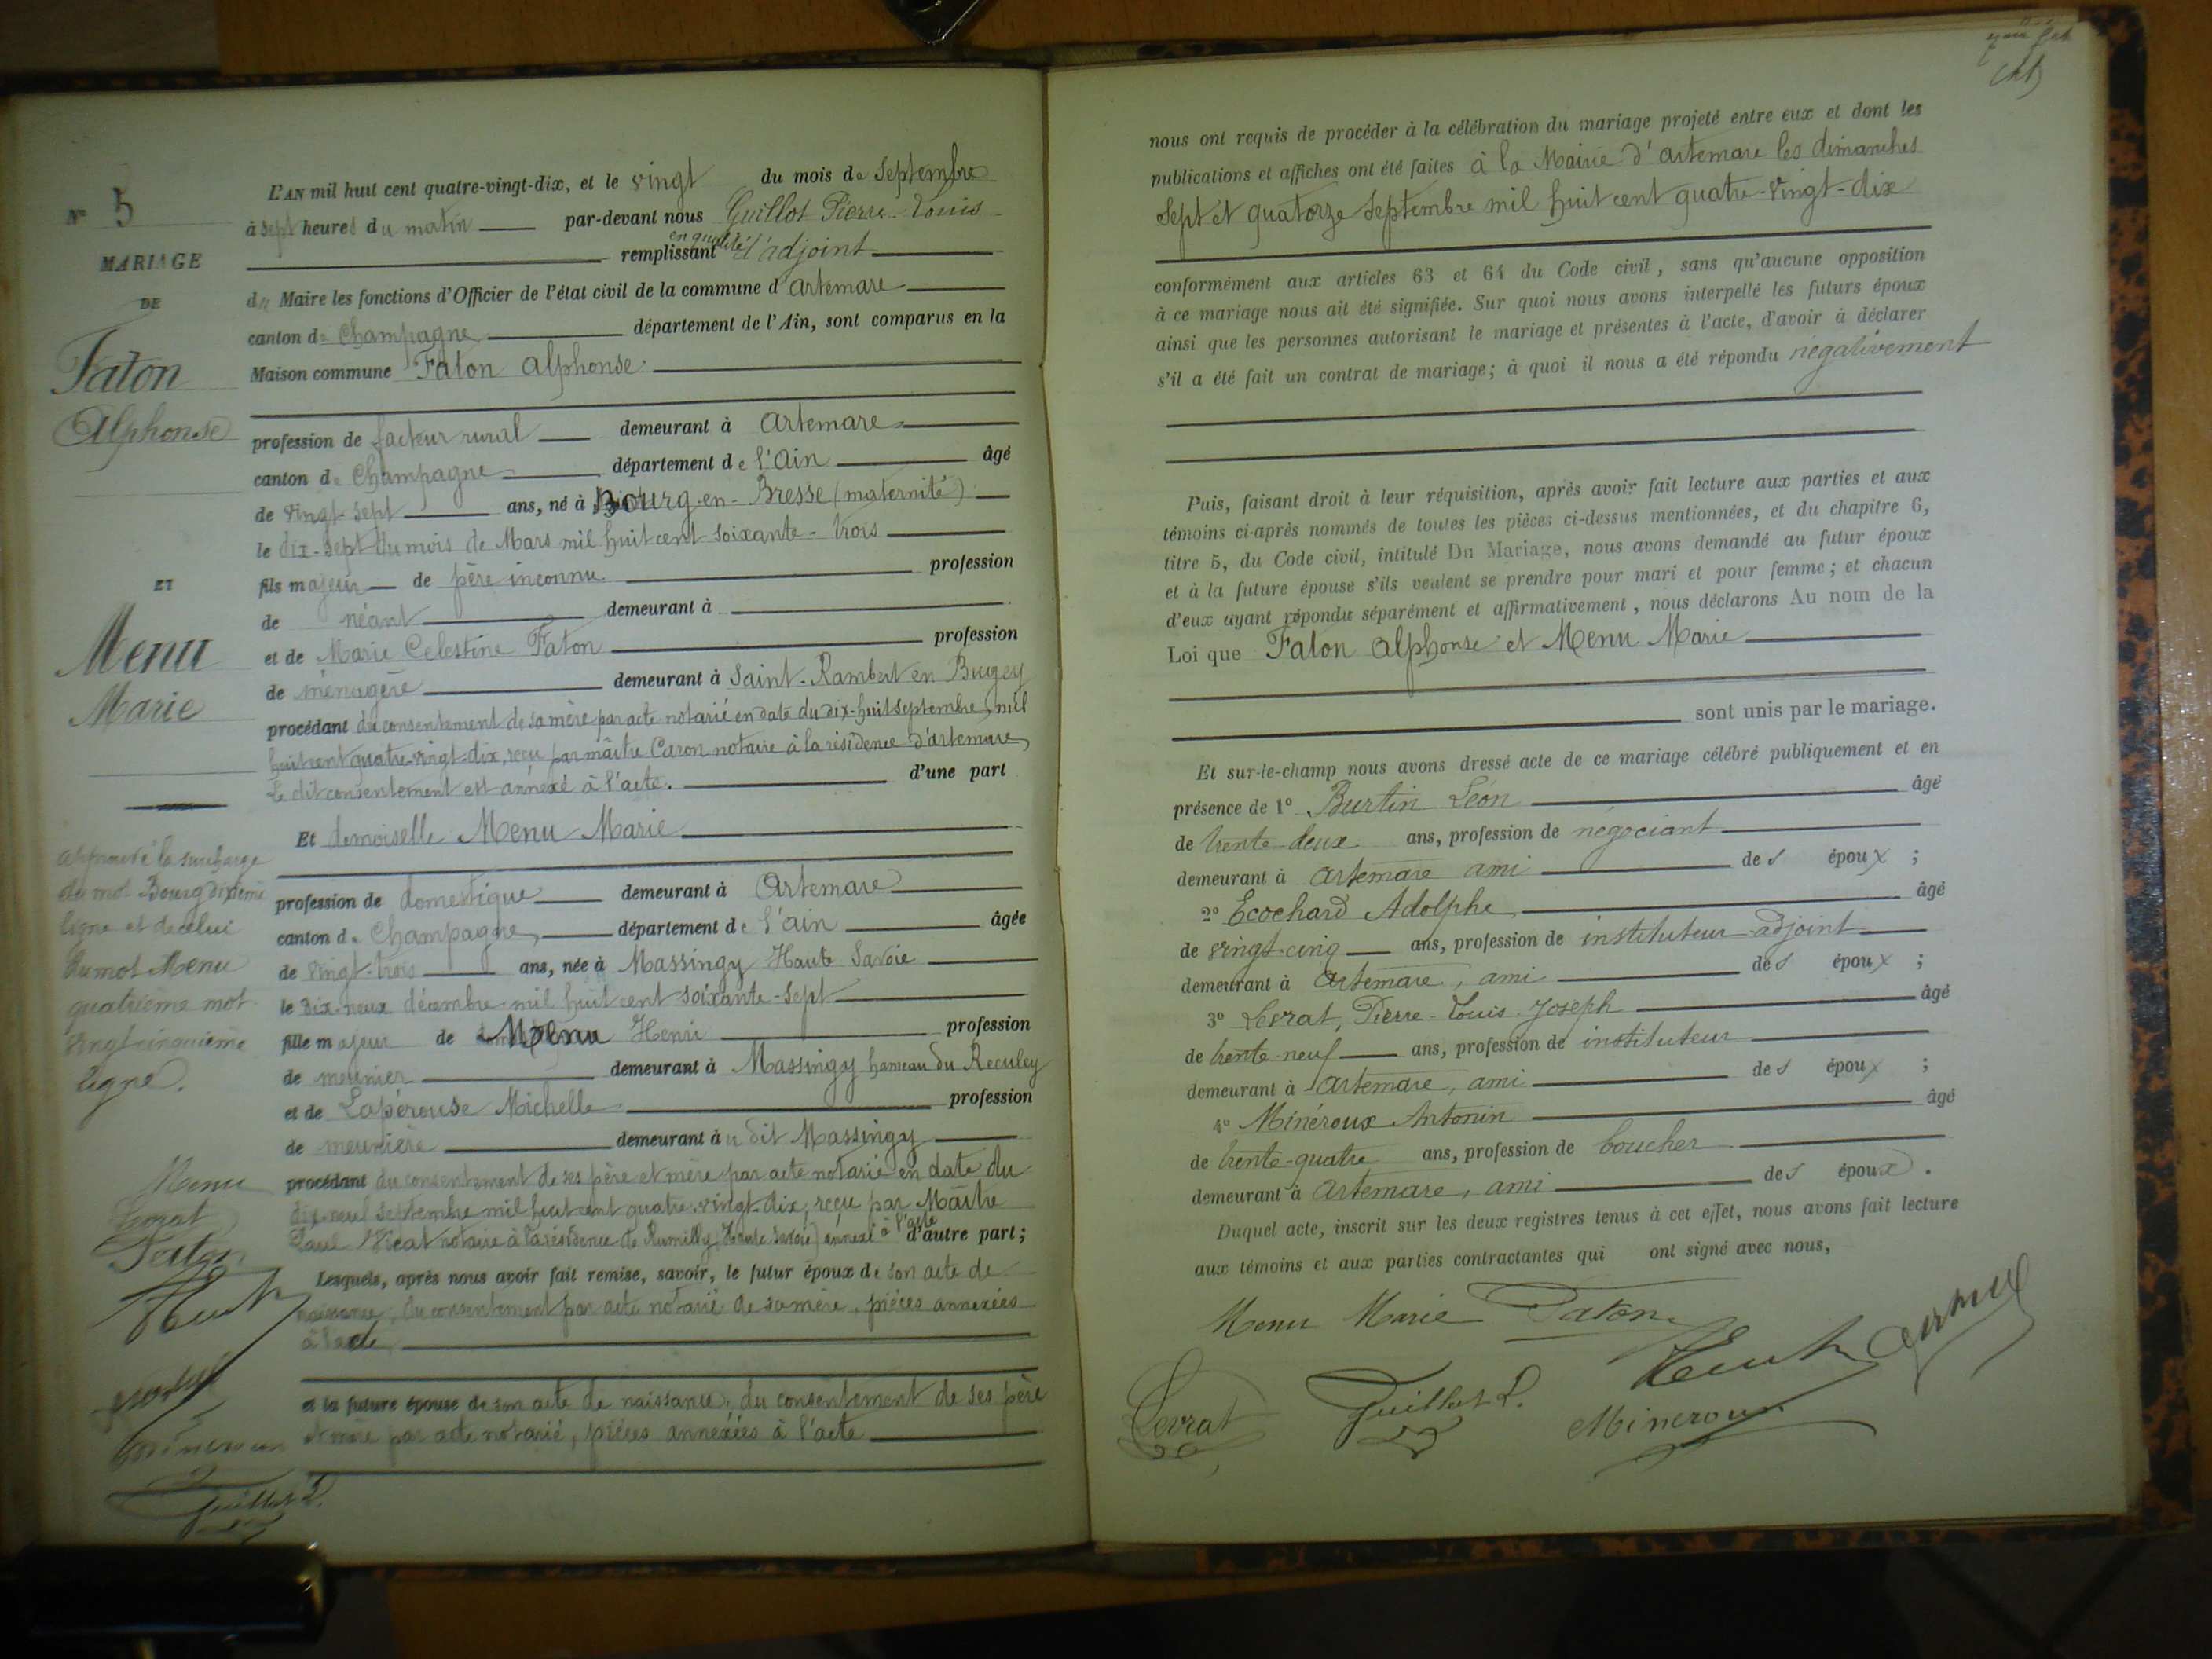 N° 5
MARIAGE
DE
Faton
Alphonse
ET
Menu
Marie
approuvé la surcharge
du mot Bourg dixième
ligne et de celui
du mot Menu
quatrième mot
vingt cinquième
ligne.
Menu
Levrat
Faton
Guillot L.
L'AN mil huit cent quatre-vingt-dix, et le vingt du mois de Septembre
à sept heures du matin par-devant nous Guillot Pierre-Louis
remplissant en qualité d'adjoint
du Maire les fonctions d'Officier de l'état civil de la commune d'artemare
canton de Champagne département de l'Ain, sont comparus en la
Maison commune Faton Alphonse
profession de facteur rural demeurant à Artemare
canton de Champagne département de l'Ain âgé
de vingt-sept ans, né à Bourg-en-Bresse (maternité)
le dix-sept du mois de Mars mil huit cent soixante-trois
fils majeur de père inconnu profession
de néant demeurant à
et de Marie Celestine Faton profession
de ménagère demeurant à Saint-Rambert en Bugey
procédant du consentement de sa mère par acte notarié en date du dix-huit septembre mil
huit cent quatre-vingt-dix, reçu par maître Caron notaire à la résidence d'artemare,
Le dit consentement est annexé à l'acte. d'une part
Et demoiselle Menu Marie
profession de domestique demeurant à Artemare
canton de Champagne, département de l'ain âgée
de vingt-trois ans, née à Massingy Haute Savoie
le dix-neuf décembre mil huit cent soixante-sept
fille majeur de Menu Henri profession
de meunier demeurant à Massingy hameau du Reculey
et de Lapérouse Michelle profession
de meunière demeurant à u dit Massingy
procédant du consentement de ses père et mère par acte notarié en date du
dix-neuf septembre mil huit cent quatre-vingt-dix, reçu par Maître
Paul Vicat notaire à la résidence de Rumilly (Haute Savoie) annexé à l'acte d'autre part;
Lesquels, après nous avoir fait remise, savoir, le futur époux de son acte de
naissance, du consentement par acte notarié de sa mère, pièces annexées
à l'acte
et la future épouse de son acte de naissance, du consentement de ses père
et mère par acte notarié, pièces annexées à l'acte
nous ont requis de procéder à la célébration du mariage projeté entre eux et dont les
publications et affiches ont été faites à la Mairie d'artemare les dimanches
sept et quatorze septembre mil huit cent quatre-vingt-dix
conformément aux articles 63 et 64 du Code civil, sans qu'aucune opposition
à ce mariage nous ait été signifiée. Sur quoi nous avons interpellé les futurs époux
ainsi que les personnes autorisant le mariage et présentes à l'acte, d'avoir à déclarer
s'il a été fait un contrat de mariage; à quoi il nous a été répondu négativement
Puis, faisant droit à leur réquisition, après avoir fait lecture aux parties et aux
témoins ci-après nommés de toutes les pièces ci-dessus mentionnées, et du chapitre 6,
titre 5, du Code civil, intitulé Du Mariage, nous avons demandé au futur époux
et à la future épouse s'ils veulent se prendre pour mari et pour femme; et chacun
d'eux ayant répondu séparément et affirmativement, nous déclarons Au nom de la
Loi que Faton Alphonse et Menu Marie
sont unis par le mariage.
Et sur-le-champ nous avons dressé acte de ce mariage célébré publiquement et en
présence de 1° Burtin Léon âgé
de trente-deux ans, profession de négociant
demeurant à Artemare ami des époux ;
2° Ecochard Adolphe âgé
de vingt-cinq ans, profession de instituteur adjoint
demeurant à Artemare, ami des époux ;
3° Levrat, Pierre-Louis Joseph âgé
de trente-neuf ans, profession de instituteur
demeurant à Artemare, ami des époux ;
4° Minéroux Antonin âgé
de trente-quatre ans, profession de boucher
demeurant à Artemare, ami des époux.
Duquel acte, inscrit sur les deux registres tenus à cet effet, nous avons fait lecture
aux témoins et aux parties contractantes qui ont signé avec nous,
Menu Marie Faton
Levrat Guillot L. Mineroux